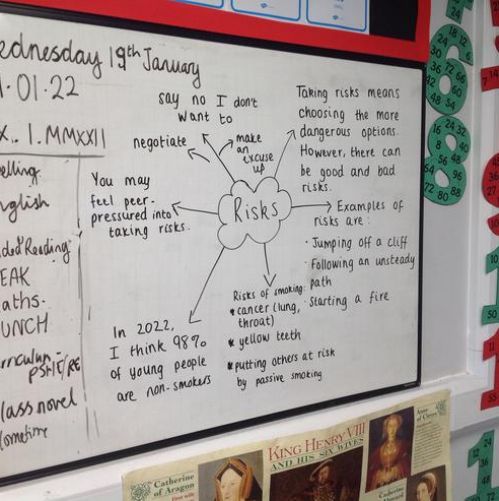 Wednesday 19th January
.01.22
X.. I. MMXXII
elling
nglish
ded Reading
EAK
aths.
UNCH
PSHE/RE
lass novel
ometime
say no
I don't
want to
negotiate
make
an
excuse
up
Taking risks means
choosing the more
dangerous options.
However, there can
be good and bad
risks.
You may
feel peer-
pressured into
taking risks.
Risks
Examples of
risks are:
· Jumping off a cliff
· Following an unsteady
path
· Starting a fire
Risks of smoking:
• cancer (lung,
throat)
• yellow teeth
• putting others at risk
by passive smoking
In 2022,
I think 98%
of young people
are non-smokers
KING HENRY VIII
AND HIS SIX WIVES
Catherine
of Aragon
Anne
of Cleves
Catherine
24
36
30
72
66
42
60
48
54
24
32
16
40
8
48
96
56
88
64
72
80
7
14
36
27
10
50
55
12
24
36
48